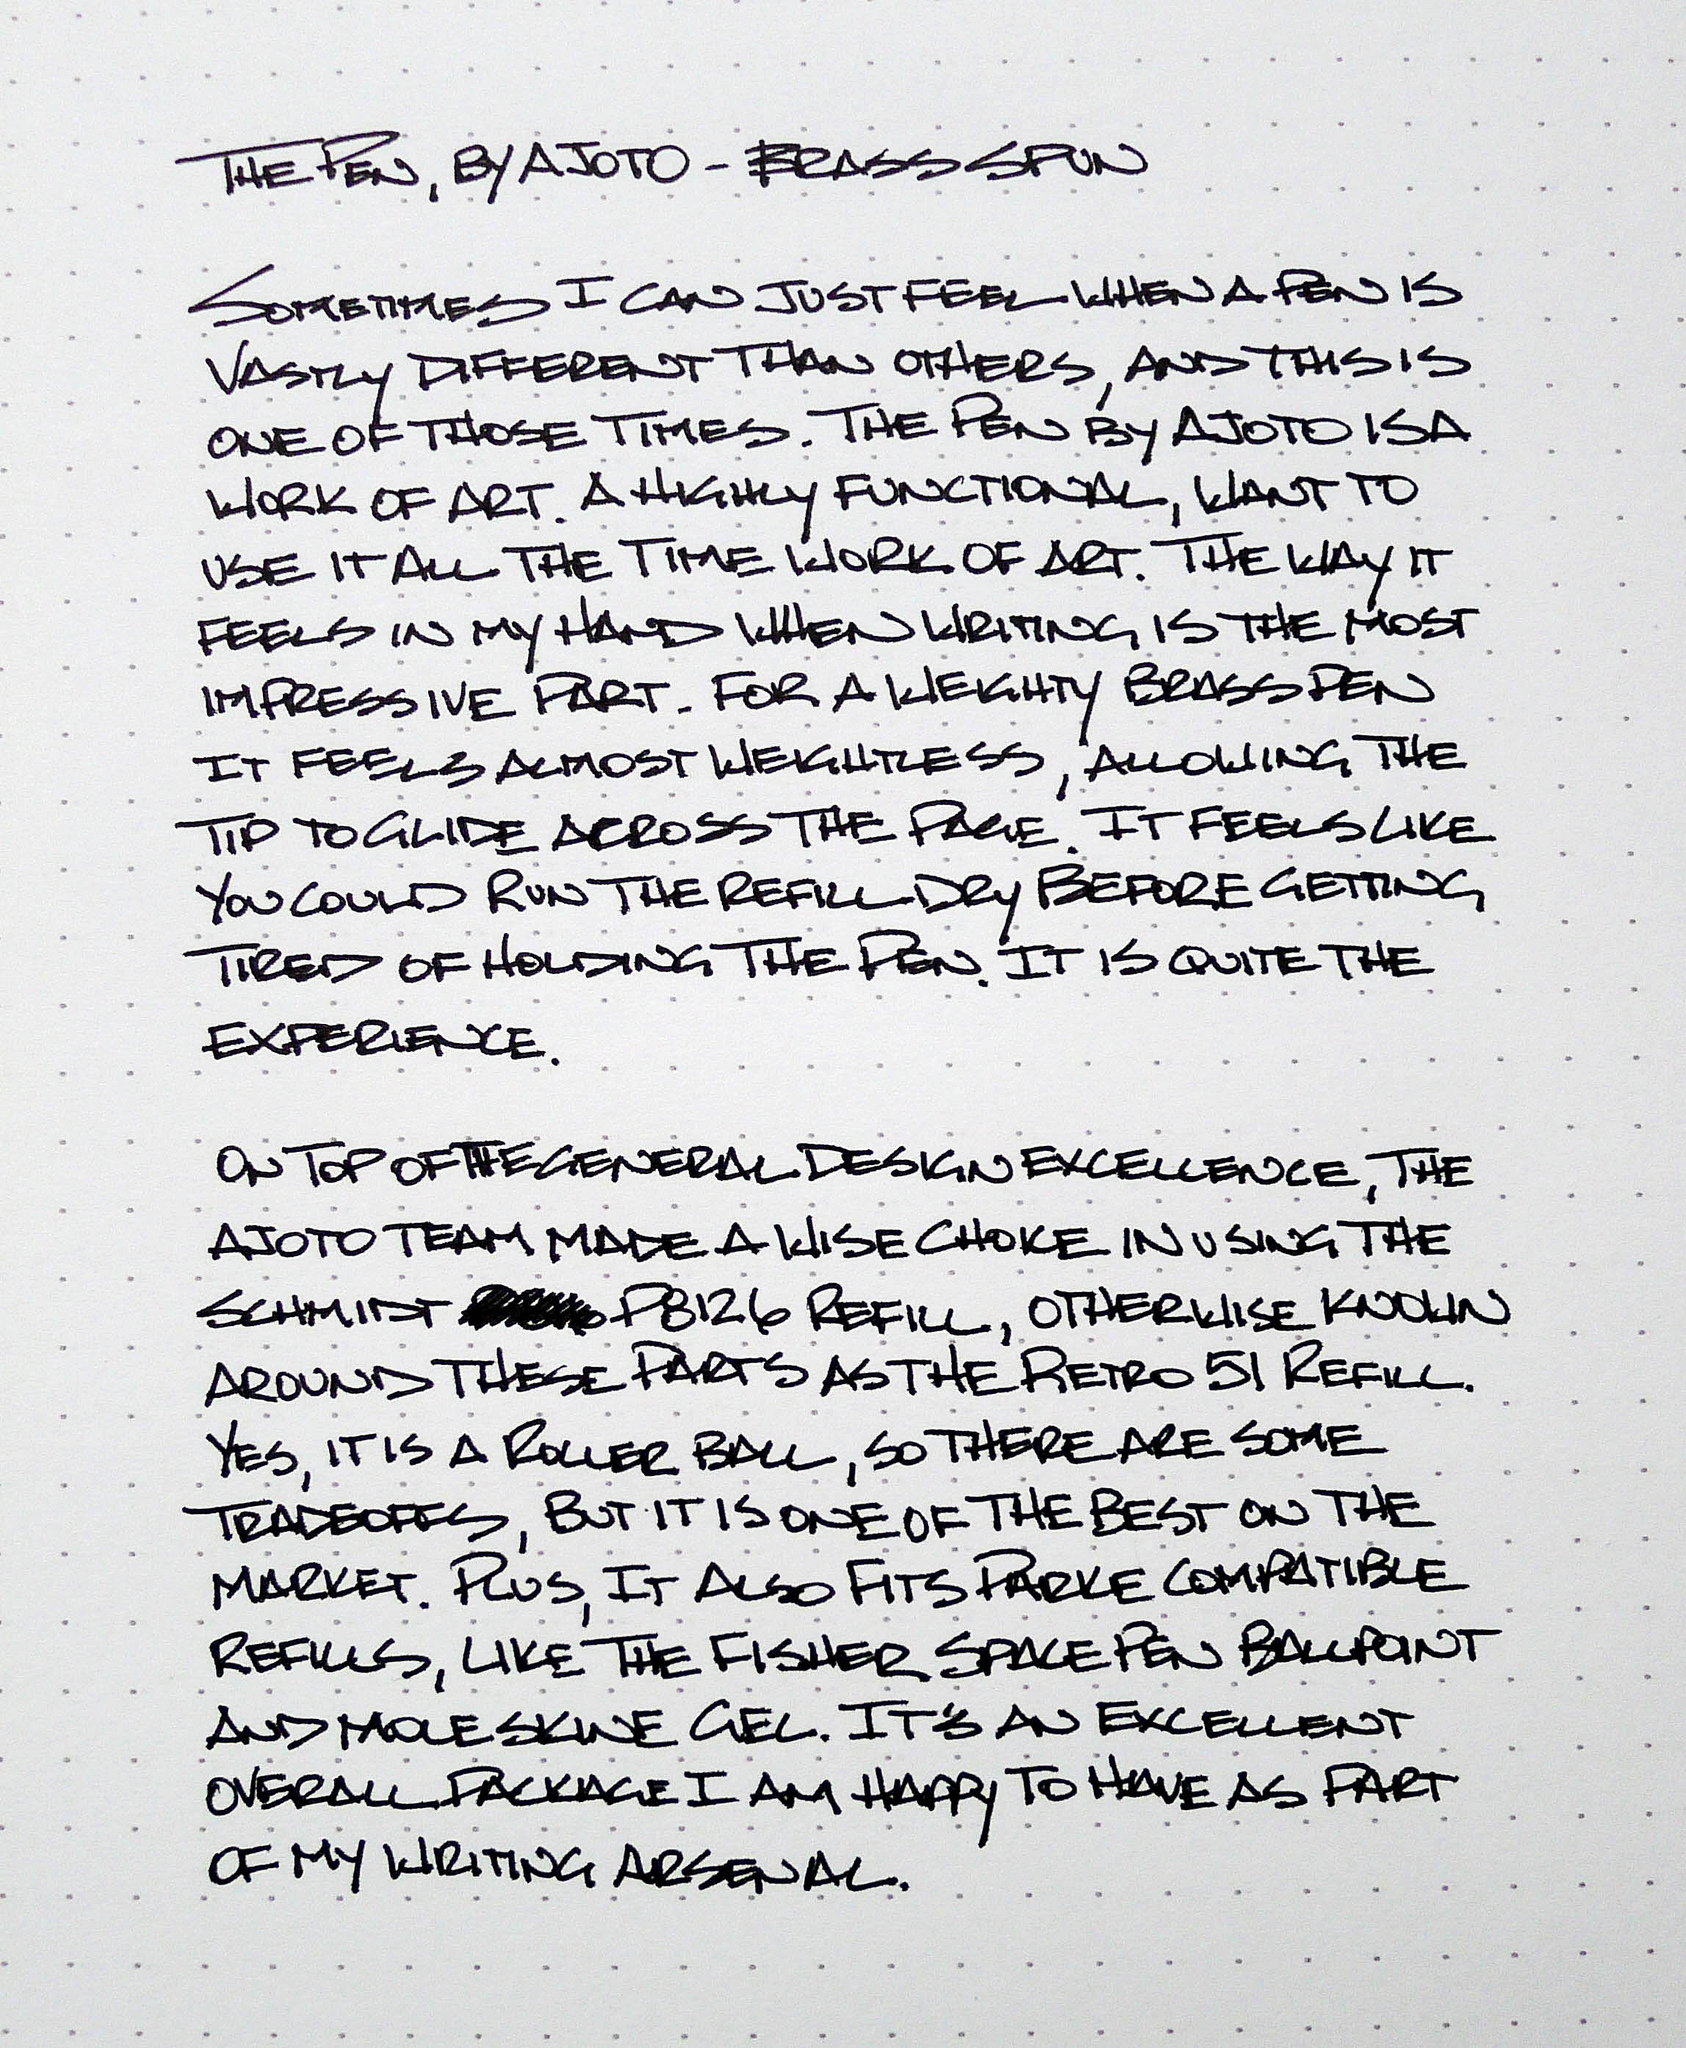 THE PEN, BY AJOTO - BRASS SPUN
SOMETIMES I CAN JUST FEEL WHEN A PEN IS
VASTLY DIFFERENT THAN OTHERS, AND THIS IS
ONE OF THOSE TIMES. THE PEN BY AJOTO IS A
WORK OF ART. A HIGHLY FUNCTIONAL, WANT TO
USE IT ALL THE TIME WORK OF ART. THE WAY IT
FEELS IN MY HAND WHEN WRITING IS THE MOST
IMPRESSIVE PART. FOR A WEIGHTY BRASS PEN
IT FEELS ALMOST WEIGHTLESS, ALLOWING THE
TIP TO GLIDE ACROSS THE PAGE. IT FEELS LIKE
YOU COULD RUN THE REFILL DRY BEFORE GETTING
TIRED OF HOLDING THE PEN. IT IS QUITE THE
EXPERIENCE.
ON TOP OF THE GENERAL DESIGN EXCELLENCE, THE
AJOTO TEAM MADE A WISE CHOICE IN USING THE
SCHMIDT P8126 REFILL, OTHERWISE KNOWN
AROUND THESE PARTS AS THE RETRO 51 REFILL.
YES, IT IS A ROLLER BALL, SO THERE ARE SOME
TRADEOFFS, BUT IT IS ONE OF THE BEST ON THE
MARKET. PLUS, IT ALSO FITS PARKE COMPATIBLE
REFILLS, LIKE THE FISHER SPACE PEN BALLPOINT
AND MOLESKINE GEL. IT'S AN EXCELLENT
OVERALL PACKAGE I AM HAPPY TO HAVE AS PART
OF MY WRITING ARSENAL.